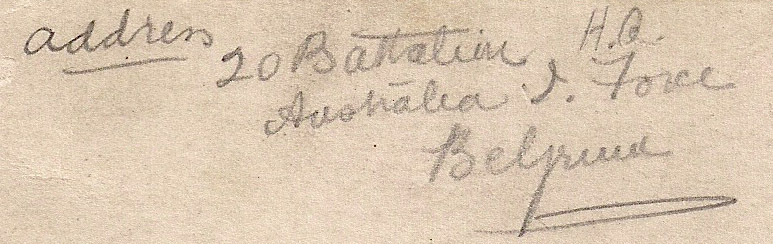 address 20 Battalion H.Q.
Australia I. Force
Belgium